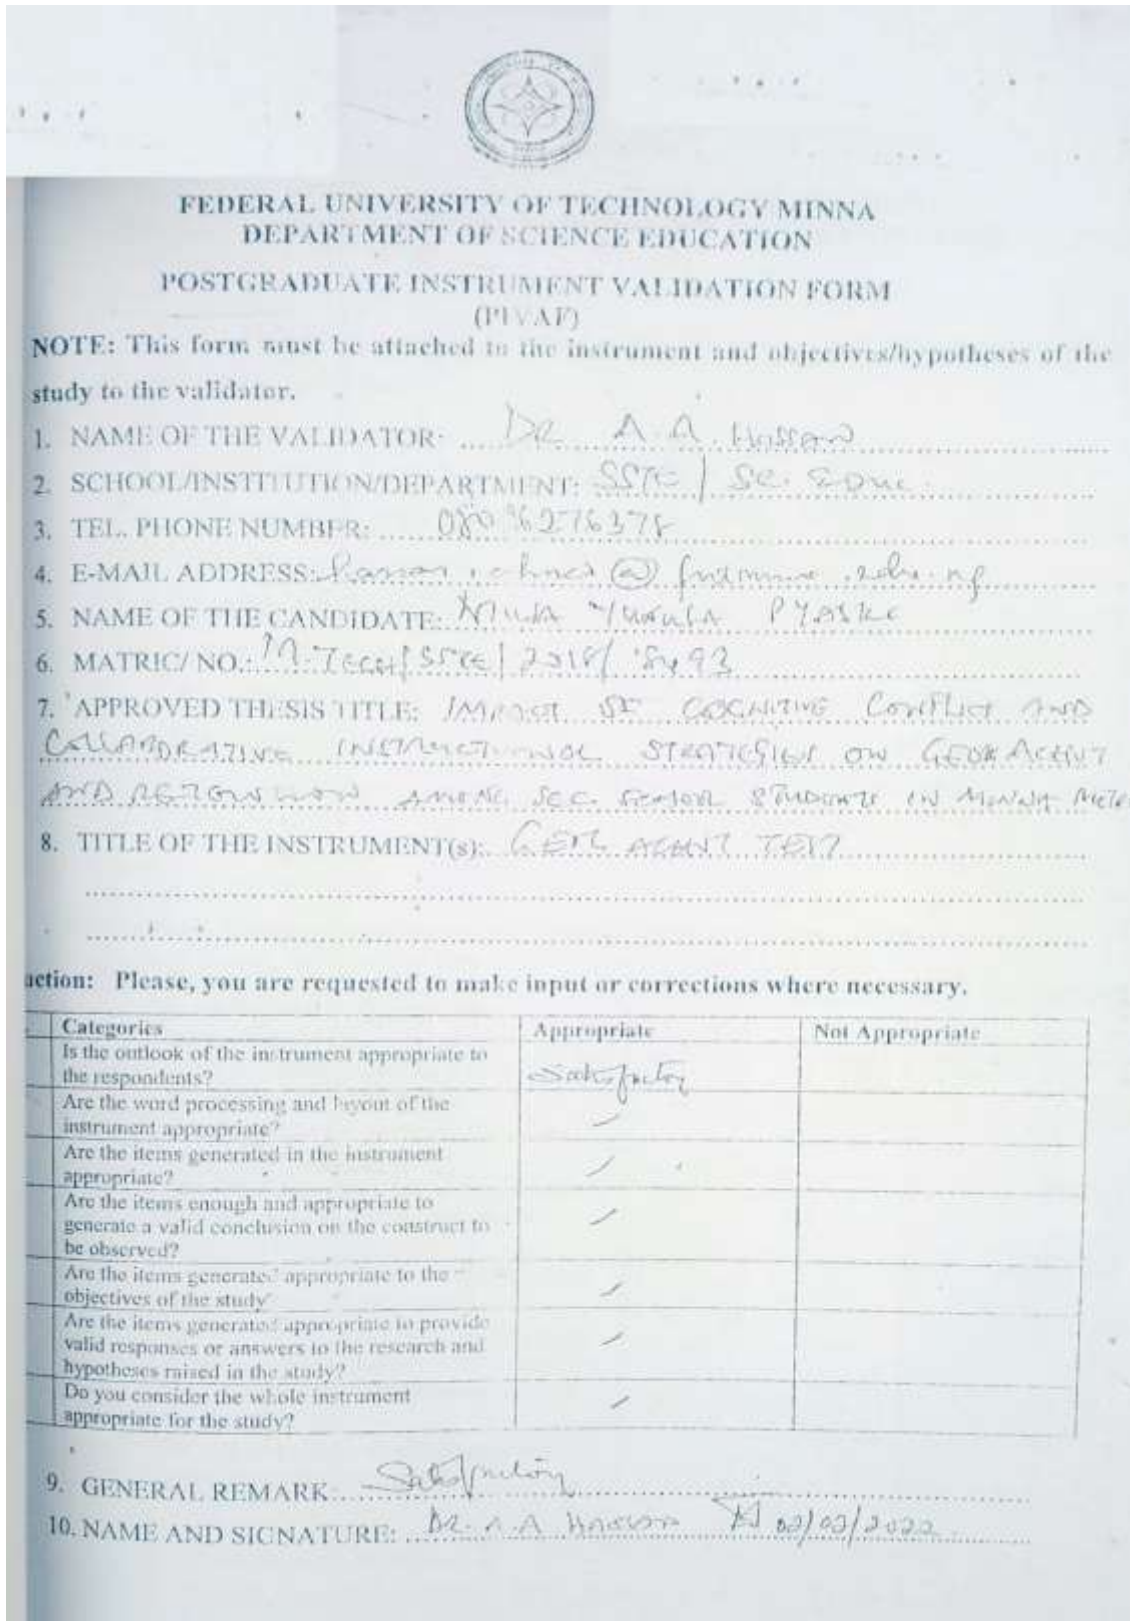 FEDERAL UNIVERSITY OF TECHNOLOGY MINNA
DEPARTMENT OF SCIENCE EDUCATION
POSTGRADUATE INSTRUMENT VALIDATION FORM
(PIVAF)
NOTE: This form must be attached to the instrument and objectives/hypotheses of the
study to the validator.
1. NAME OF THE VALIDATOR: DR A A Hassan
2. SCHOOL/INSTITUTION/DEPARTMENT: SSTE / Sc. Educ.
3. TEL. PHONE NUMBER: 08096276378
4. E-MAIL ADDRESS:
5. NAME OF THE CANDIDATE:
6. MATRIC/ NO.: M.TECH/SSTE/2018/
7. APPROVED THESIS TITLE: IMPACT OF COGNITIVE CONFLICT AND
COLLABORATIVE INSTRUCTIONAL STRATEGIES ON
AND AMONG SEC. STUDENTS IN MINNA
8. TITLE OF THE INSTRUMENT(s): TEST
action: Please, you are requested to make input or corrections where necessary.
Categories Appropriate Not Appropriate
Is the outlook of the instrument appropriate to
the respondents? Satisfactory
Are the word processing and layout of the
instrument appropriate?
Are the items generated in the instrument
appropriate?
Are the items enough and appropriate to
generate a valid conclusion on the construct to
be observed?
Are the items generated appropriate to the
objectives of the study
Are the items generated appropriate to provide
valid responses or answers to the research and
hypotheses raised in the study?
Do you consider the whole instrument
appropriate for the study?
9. GENERAL REMARK: Satisfactory
10. NAME AND SIGNATURE: DR. A.A Hassan 02/02/2022